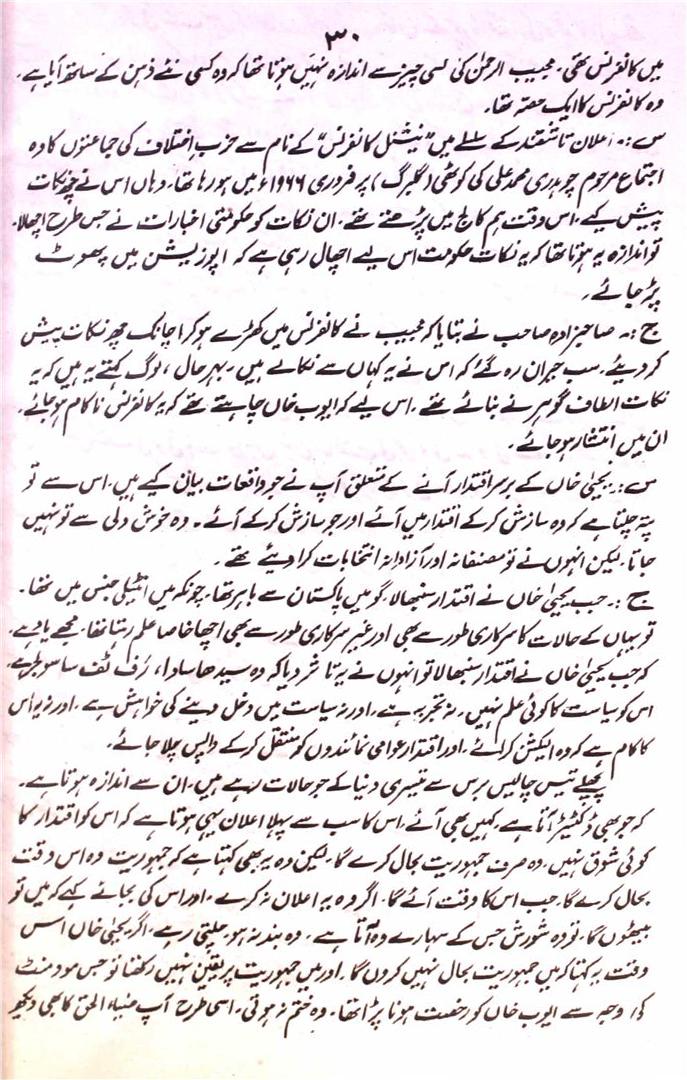 ۳۰
میں کانفرنس تھی۔ مجیب الرحمٰن کی کسی چیز سے اندازہ نہیں ہوتا تھا کہ وہ کسی نئے ذہن کے ساتھ آیا ہے۔
وہ کانفرنس کا ایک حصہ تھا۔
س:۔ اعلان تاشقند کے سلسلے میں "نیشنل کانفرنس" کے نام سے حزب اختلاف کی جماعتوں کا وہ
اجتماع مرحوم چوہدری محمد علی کی کوٹھی (گلبرگ) پر فروری ۱۹۶۶ء میں ہو رہا تھا۔ وہاں اس نے چھ نکات
پیش کیے۔ اس وقت ہم کالج میں پڑھتے تھے۔ ان نکات کو حکومتی اخبارات نے جس طرح اچھالا۔
تو اندازہ یہ ہوتا تھا کہ یہ نکات حکومت اس لیے اچھال رہی ہے کہ اپوزیشن میں پھوٹ
پڑ جائے۔
ج:۔ صاحبزادہ صاحب نے بتایا کہ مجیب نے کانفرنس میں کھڑے ہو کر اچانک چھ نکات پیش
کر دیئے۔ سب حیران رہ گئے کہ اس نے یہ کہاں سے نکالے ہیں۔ بہرحال، لوگ کہتے یہ ہیں کہ یہ
نکات الطاف گوہر نے بنائے تھے۔ اس لیے کہ ایوب خاں چاہتے تھے کہ یہ کانفرنس ناکام ہو جائے۔
ان میں انتشار ہو جائے۔
س:۔ یحییٰ خاں کے برسر اقتدار آنے کے متعلق آپ نے جو واقعات بیان کیے ہیں۔ اس سے تو
پتہ چلتا ہے کہ وہ سازش کر کے اقتدار میں آئے اور جو سازش کر کے آئے۔ وہ خوش دلی سے تو نہیں
جاتا۔ لیکن انہوں نے تو منصفانہ اور آزادانہ انتخابات کرا دیئے تھے۔
ج:۔ جب یحییٰ خاں نے اقتدار سنبھالا۔ گو میں پاکستان سے باہر تھا۔ چونکہ میں انٹیلی جنس میں تھا۔
تو یہاں کے حالات کا سرکاری طور سے بھی اور غیر سرکاری طور سے بھی اچھا خاصا علم رہتا تھا۔ مجھے یاد ہے۔
کہ جب یحییٰ خاں نے اقتدار سنبھالا تو انہوں نے یہ تاثر دیا کہ وہ سیدھا سادا، رف ٹف سا سولجر ہے۔
اس کو سیاست کا کوئی علم نہیں۔ نہ تجربہ ہے۔ اور نہ سیاست میں دخل دینے کی خواہش ہے۔ اور نہ یہ اس
کا کام ہے کہ وہ الیکشن کرائے۔ اور اقتدار عوامی نمائندوں کو منتقل کر کے واپس چلا جائے۔
پچھلے تیس چالیس برس سے تیسری دنیا کے جو حالات رہے ہیں۔ ان سے اندازہ ہوتا ہے۔
کہ جو بھی ڈکٹیٹر آتا ہے۔ کہیں بھی آئے۔ اس کا سب سے پہلا اعلان یہی ہوتا ہے کہ اس کو اقتدار کا
کوئی شوق نہیں۔ وہ صرف جمہوریت بحال کرے گا۔ لیکن وہ یہ بھی کہتا ہے کہ جمہوریت وہ اس وقت
بحال کرے گا۔ جب اس کا وقت آئے گا۔ اگر وہ یہ اعلان نہ کرے۔ اور اس کی بجائے کہے کہ میں تو
بیٹھوں گا۔ تو وہ شورش جس کے سہارے وہ آتا ہے۔ وہ بند نہ ہو۔ چلتی رہے۔ اگر یحییٰ خاں اس
وقت یہ کہتا کہ میں جمہوریت بحال نہیں کروں گا۔ اور میں جمہوریت پر یقین نہیں رکھتا تو جس مودمنٹ
کی وجہ سے ایوب خاں کو رخصت ہونا پڑا تھا۔ وہ ختم نہ ہوتی۔ اسی طرح آپ ضیاء الحق کا بھی دیکھو